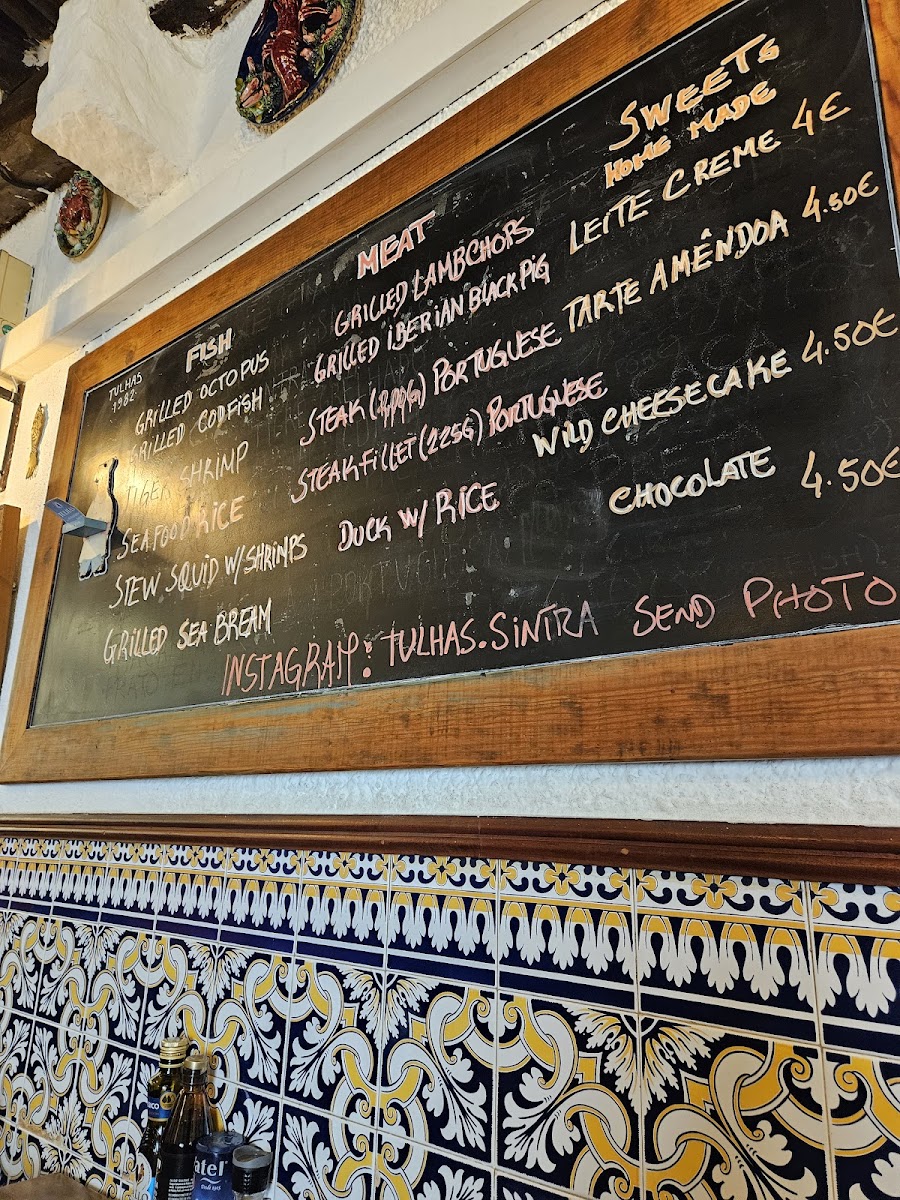 TULHAS
1982
FISH
GRILLED OCTOPUS
GRILLED CODFISH
TIGER SHRIMP
SEAFOOD RICE
STEW SQUID W/SHRIMPS
GRILLED SEA BREAM
MEAT
GRILLED LAMBCHOPS
GRILLED IBERIAN BLACK PIG
STEAK PORTUGUESE
STEAK FILLET (225G) PORTUGUESE
DUCK W/ RICE
SWEETS
HOME MADE
LEITE CREME 4€
TARTE AMÊNDOA 4.50€
WILD CHEESECAKE 4.50€
CHOCOLATE 4.50€
INSTAGRAM: TULHAS.SINTRA SEND PHOTO